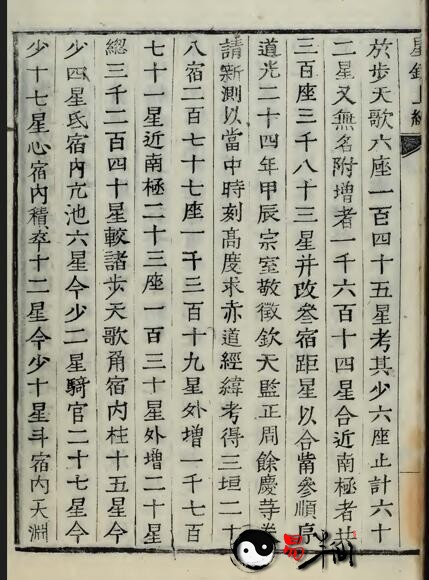 於步天歌六座一百四十五星考其少六座止計六十
二星又無名附增者一千六百十四星合近南極者共
三百座三千八十三星并改參宿距星以合觜參順序
道光二十四年甲辰宗室敬徵欽天監正周餘慶等奏
請新測以當中時刻高度求赤道經緯考得三垣二十
八宿二百七十七座一千三百十九星外增一千七百
七十一星近南極二十三座一百三十星外增二十星
總三千二百四十星較諸步天歌角宿內柱十五星今
少四星氐宿內亢池六星今少二星騎官二十七星今
少十七星心宿內積卒十二星今少十星斗宿內天淵